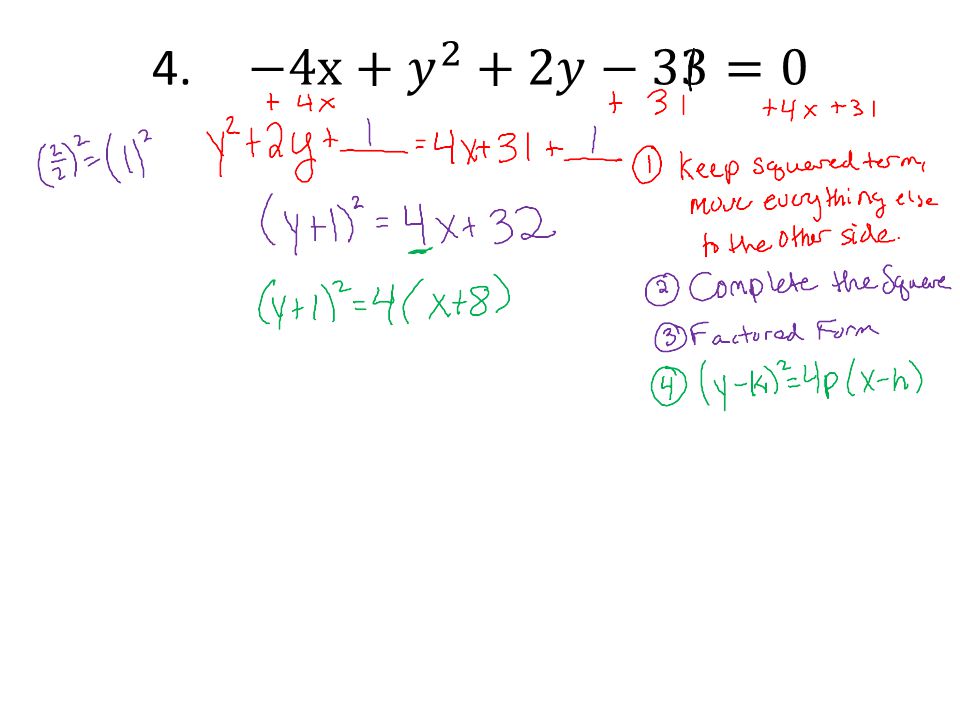 4. −4x + y² + 2y − 31 = 0
+ 4x + 31 +4x +31
(2/2)² = (1)² y² + 2y + 1 = 4x + 31 + 1
① Keep squared term,
move everything else
to the other side.
(y+1)² = 4x + 32
② Complete the Square
(y+1)² = 4(x+8)
③ Factored Form
④ (y−k)² = 4p(x−h)